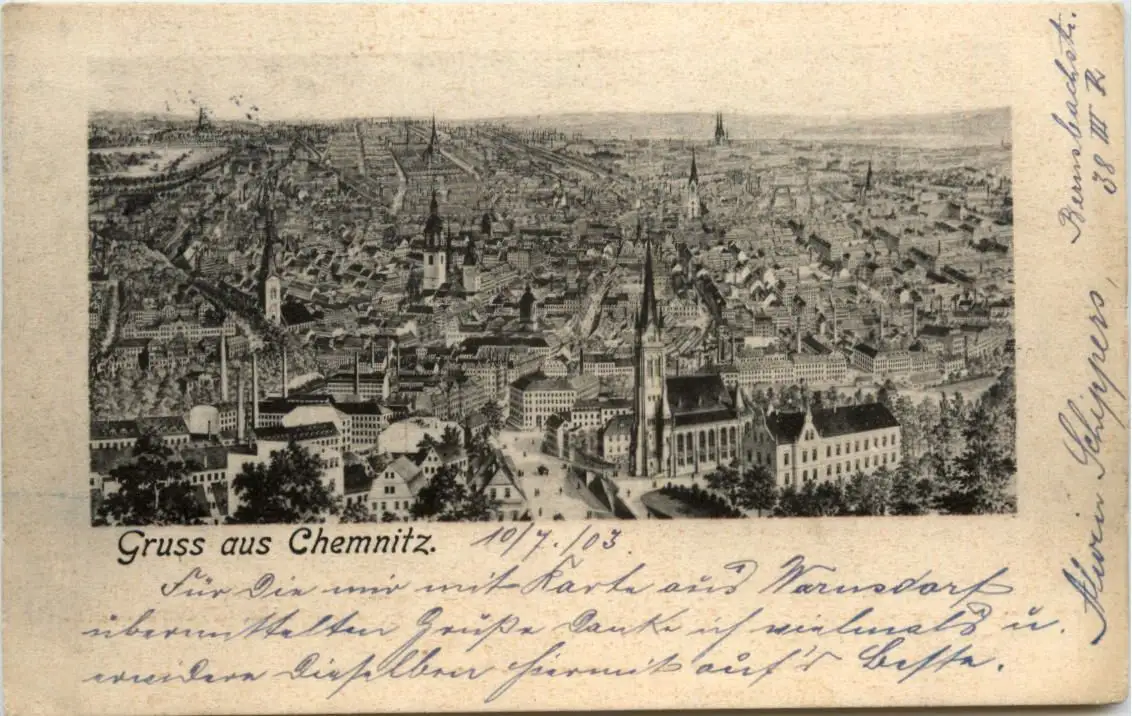 Gruss aus Chemnitz. 10/7./03.
Für Die mir mit Karte aus Warnsdorf
übermittelten Grüße Danke ich vielmals u.
erwidere Dieselben hiermit auf's Beste.
Alwin Schippers,
Bernsbachstr.
38 III R